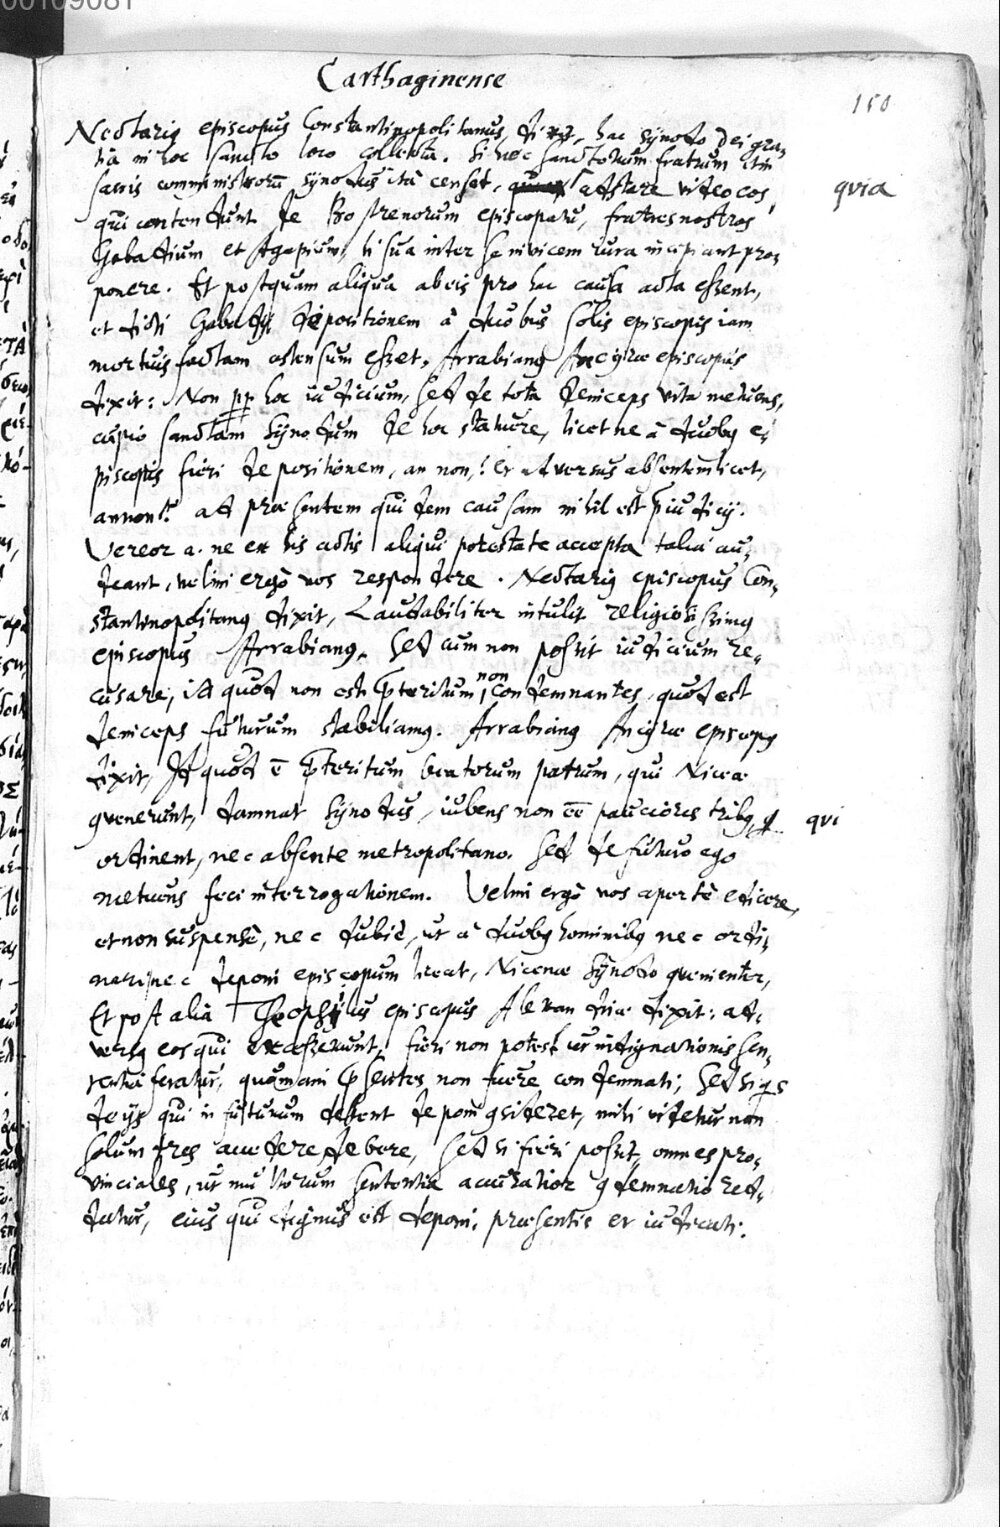 00109081
Carthaginense
150
Nectarius episcopus Constantinopolitanus, dixit, hac synodo Dei gra-
tia in hoc sancto loco collecta. Si hoc sanctorum fratrum
sacris comministrorū synodus ita censet, adstare video eos, quia
qui contendunt de Bostrenorum episcopatu, fratres nostros
Gabadium et Agapium, si sua inter se invicem iura incipiant pro-
ponere. Et postquam aliqua ab eis pro hac causa acta essent,
et dicti Gabadij depositionem à duobus solis episcopis iam
mortuis factam ostensum esset, Arrabianꝰ Ancyræ episcopus
dixit: Non pp hoc iudicium, sed de tota deniceps vita metuens,
cupio sanctam synodum de hoc statuere, licet ne à duobꝰ e-
piscopis fieri depositionem, an non? et adversus absentem licet,
an non? ad præsentem quidem causam nihil est p̄iudicij.
Vereor a. ne ex his actis aliqui potestate accepta talia au-
deant, velim ergò vos respondere. Nectariꝰ episcopus Con-
stantinopolitanꝰ dixit, Laudabiliter intulit religiosissimꝰ
episcopus Arrabianꝰ. Sed cum non possit iudicium re-
cusare, id quod non est p̄teritum, non condemnantes, quod est
deniceps futurum stabiliamꝰ. Arrabianꝰ Ancyræ episcopꝰ
dixit, Id quod ē p̄teritum beatorum patrum, qui Niceæ
ꝯvenerunt, damnat synodus, iubens non eē pauciores tribꝰ qui
ordinent, nec absente metropolitano. Sed de futuro ego
metuens feci interrogationem. Velim ergò vos apertè edicere,
et non suspensè, nec dubiè, ut à duobꝰ hominibꝰ nec ordi-
nari nec deponi episcopum liceat, Nicenæ synodo ꝯvenienter,
Et post alia Theophilus episcopus Alexandriæ dixit: ad-
versꝰ eos qui excesserunt, fieri non potest ut indignationis sen-
tentia feratur, quoniam p̄sentes non fuere condemnati; Sed si qs
de ijs qui in futurum debent deponi ꝯsideret, mihi videtur non
solum tres accedere debere, sed si fieri possit, omnes pro-
vinciales, ut multorum sententia accuratior ꝯdemnatio red-
datur, eius qui dignus est deponi, præsentis et iudicati.